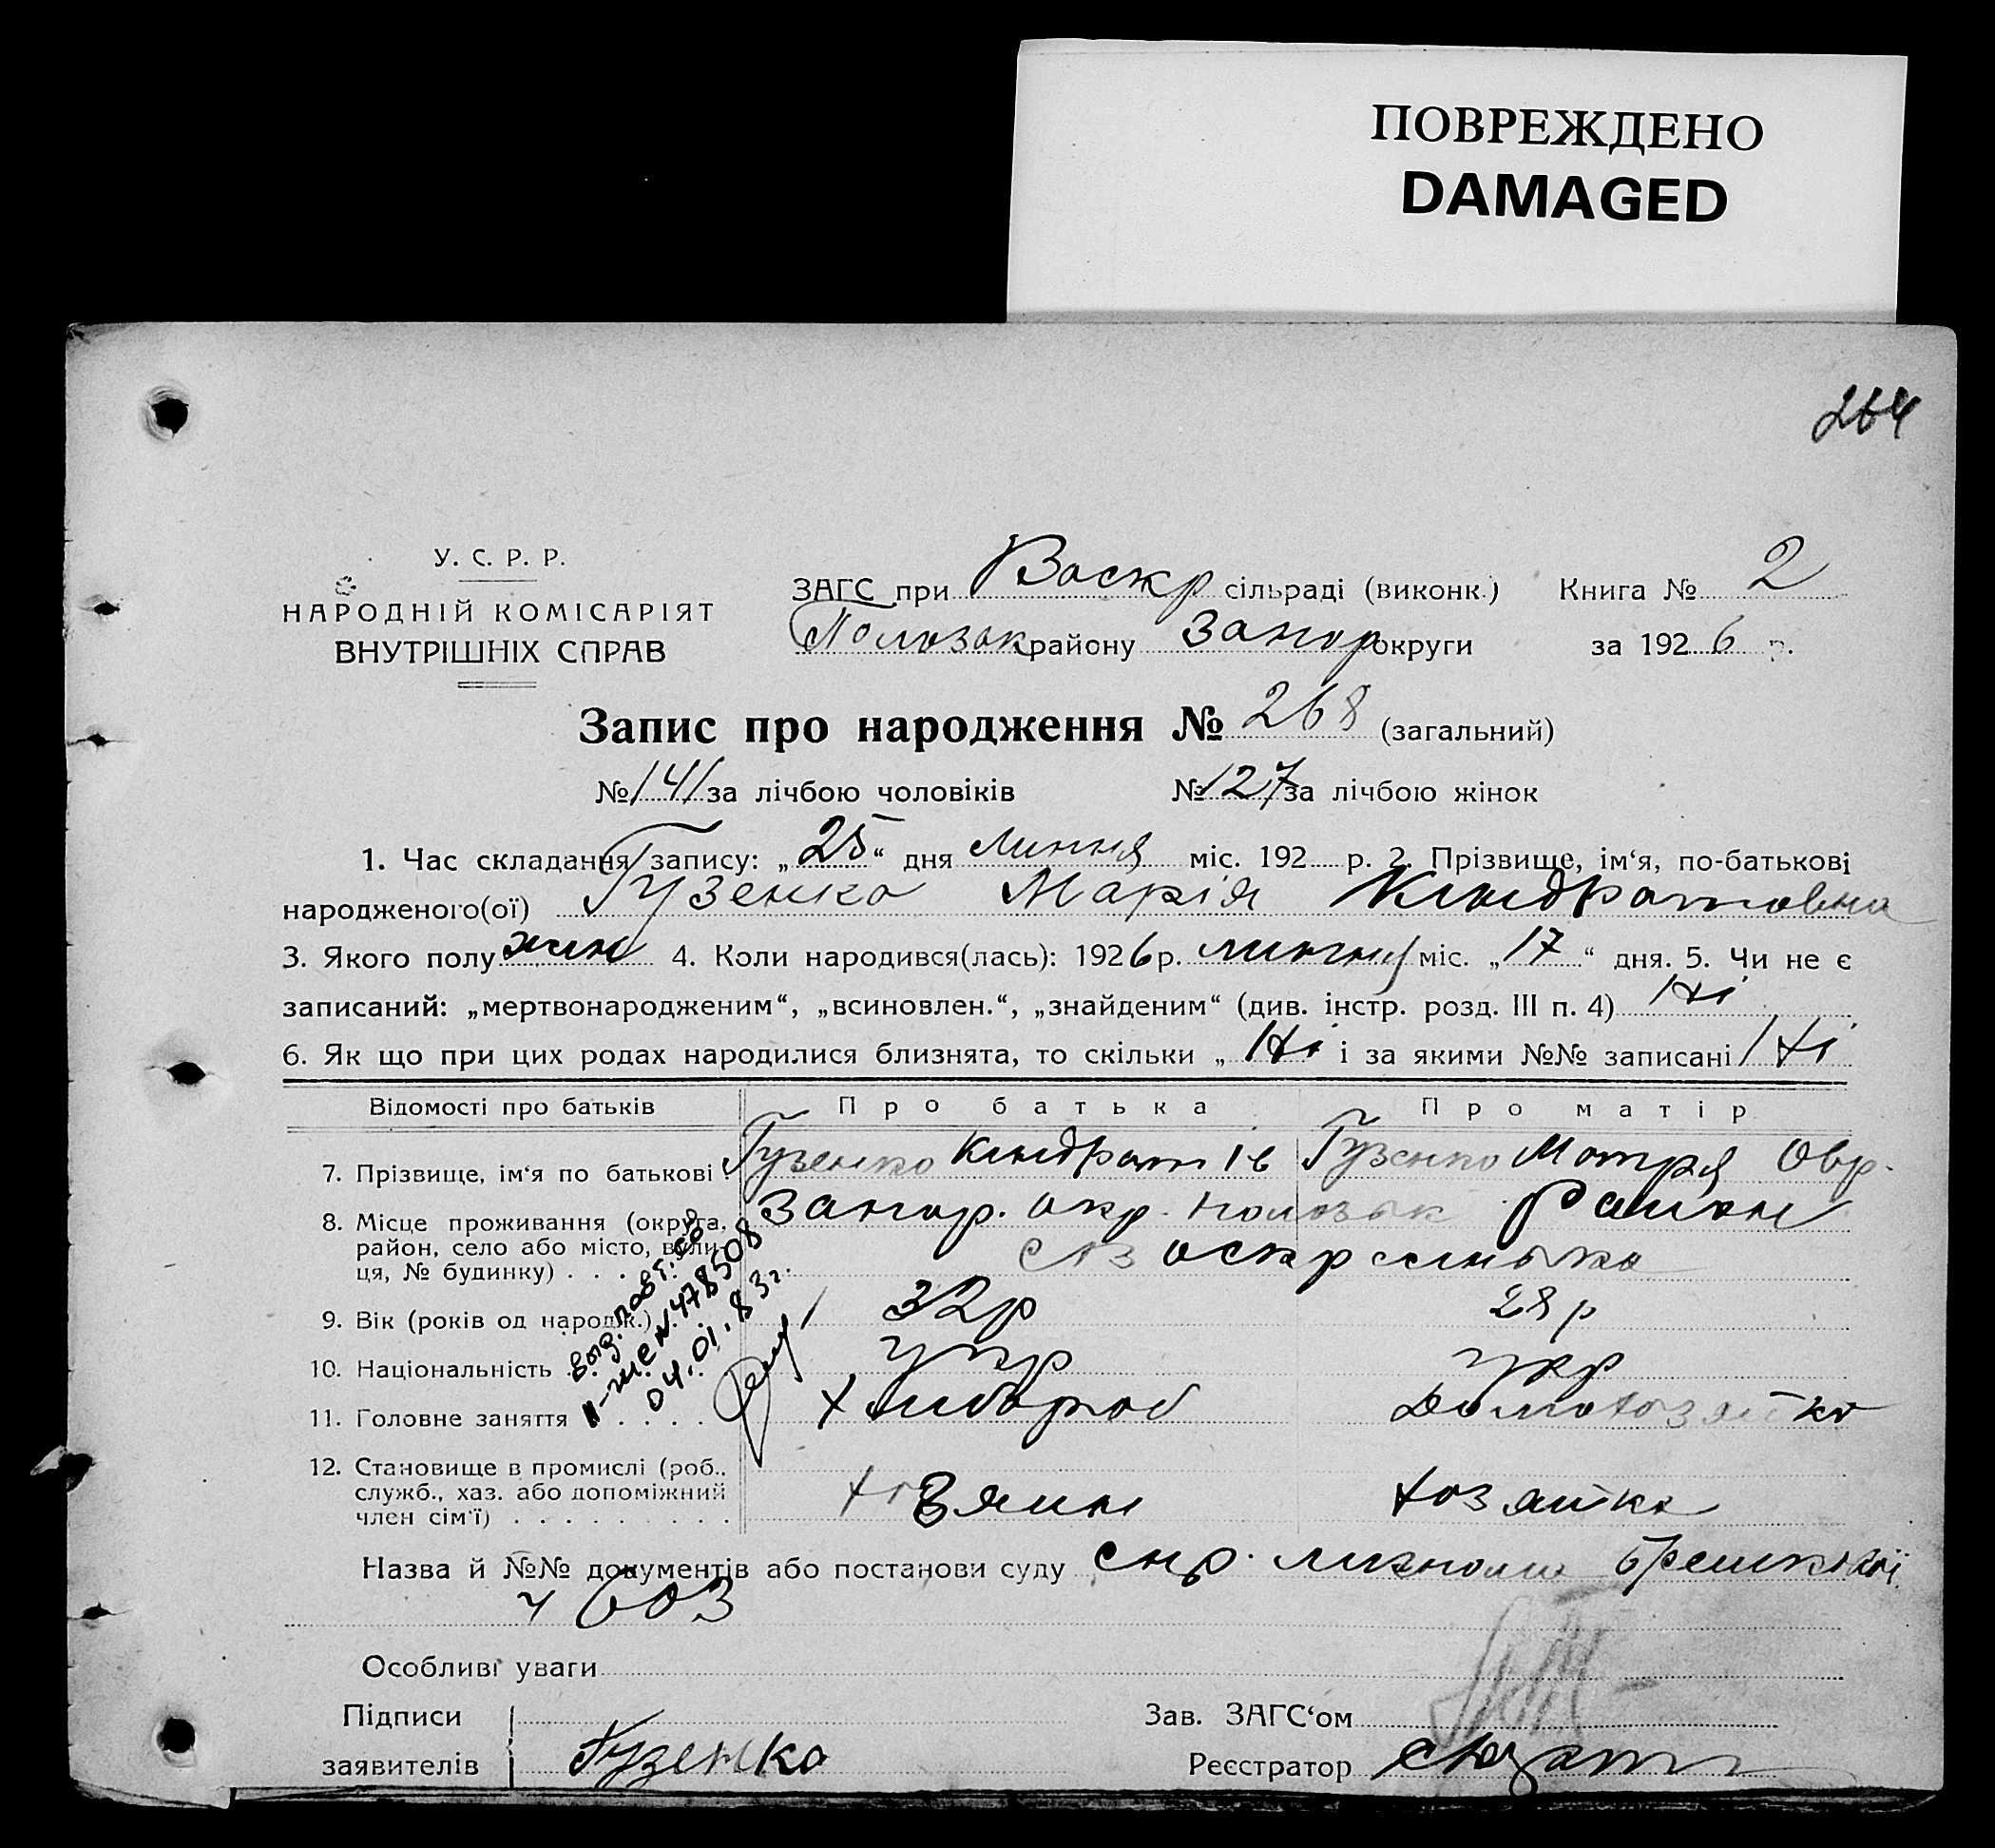 ПОВРЕЖДЕНО
DAMAGED
264
У. С. Р. Р.
НАРОДНІЙ КОМІСАРІЯТ
ВНУТРІШНІХ СПРАВ
ЗАГС при Воскр сільраді (виконк.) Книга № 2
Полозьк району Запор округи за 1926 р.
Запис про народження № 268 (загальний)
№ 141 за лічбою чоловіків № 127 за лічбою жінок
1. Час складання запису: „25“ дня липня міс. 192 р. 2. Прізвище, ім‘я, по-батькові
народженого(ої) Гузенко Марія Кіндратовна
3. Якого полу жін 4. Коли народився(лась): 1926 р. липня міс. „17“ дня. 5. Чи не є
записаний: „мертвонародженим“, „всиновлен.“, „знайденим“ (див. інстр. розд. III п. 4) Ні
6. Як що при цих родах народилися близнята, то скільки „ Ні і за якими №№ записані Ні
Відомості про батьків Про батька Про матір
7. Прізвище, ім‘я по батькові Гузенко Кіндрат Ів Гузенко Мотря Овр.
8. Місце проживання (округа, район, село або місто, вулиця, № будинку) Запор. окр. Полозьк Район
9. Вік (років од народж.) 32р 28р
10. Національність укр укр
11. Головне заняття Хлибороб Домохозяйка
12. Становище в промислі (роб., служб., хаз. або допоміжний член сім‘ї) хозяин хозяйка
выд. повт. св
II-ЖС N. 478508
04.01.83г.
Назва й №№ документів або постанови суду спр.
ч 603
Особливі уваги
Підписи заявителів Гузенко
Зав. ЗАГС‘ом
Реєстратор